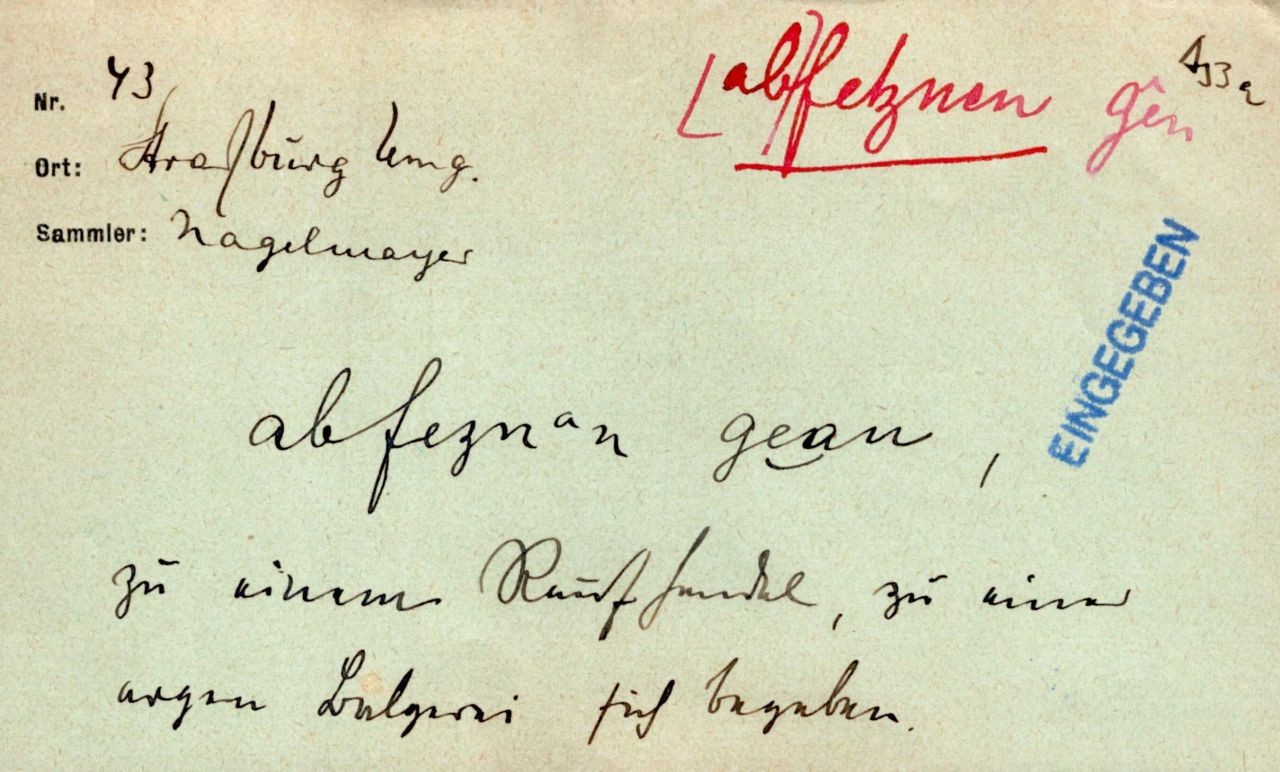 (ab)fetznen gên
A33a
Nr. 43
Ort: Straßburg Umg.
Sammler: Nagelmayer
EINGEGEBEN
abfeznan gean,
zu einem Raufhandel, zu einer
argen Balgerei sich begeben.